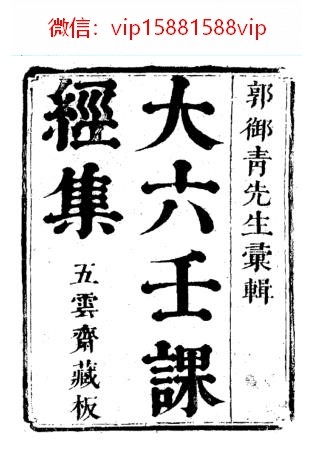 微信：vip15881588vip
郭御青先生彙輯
大六壬課
經集
五雲齋藏板